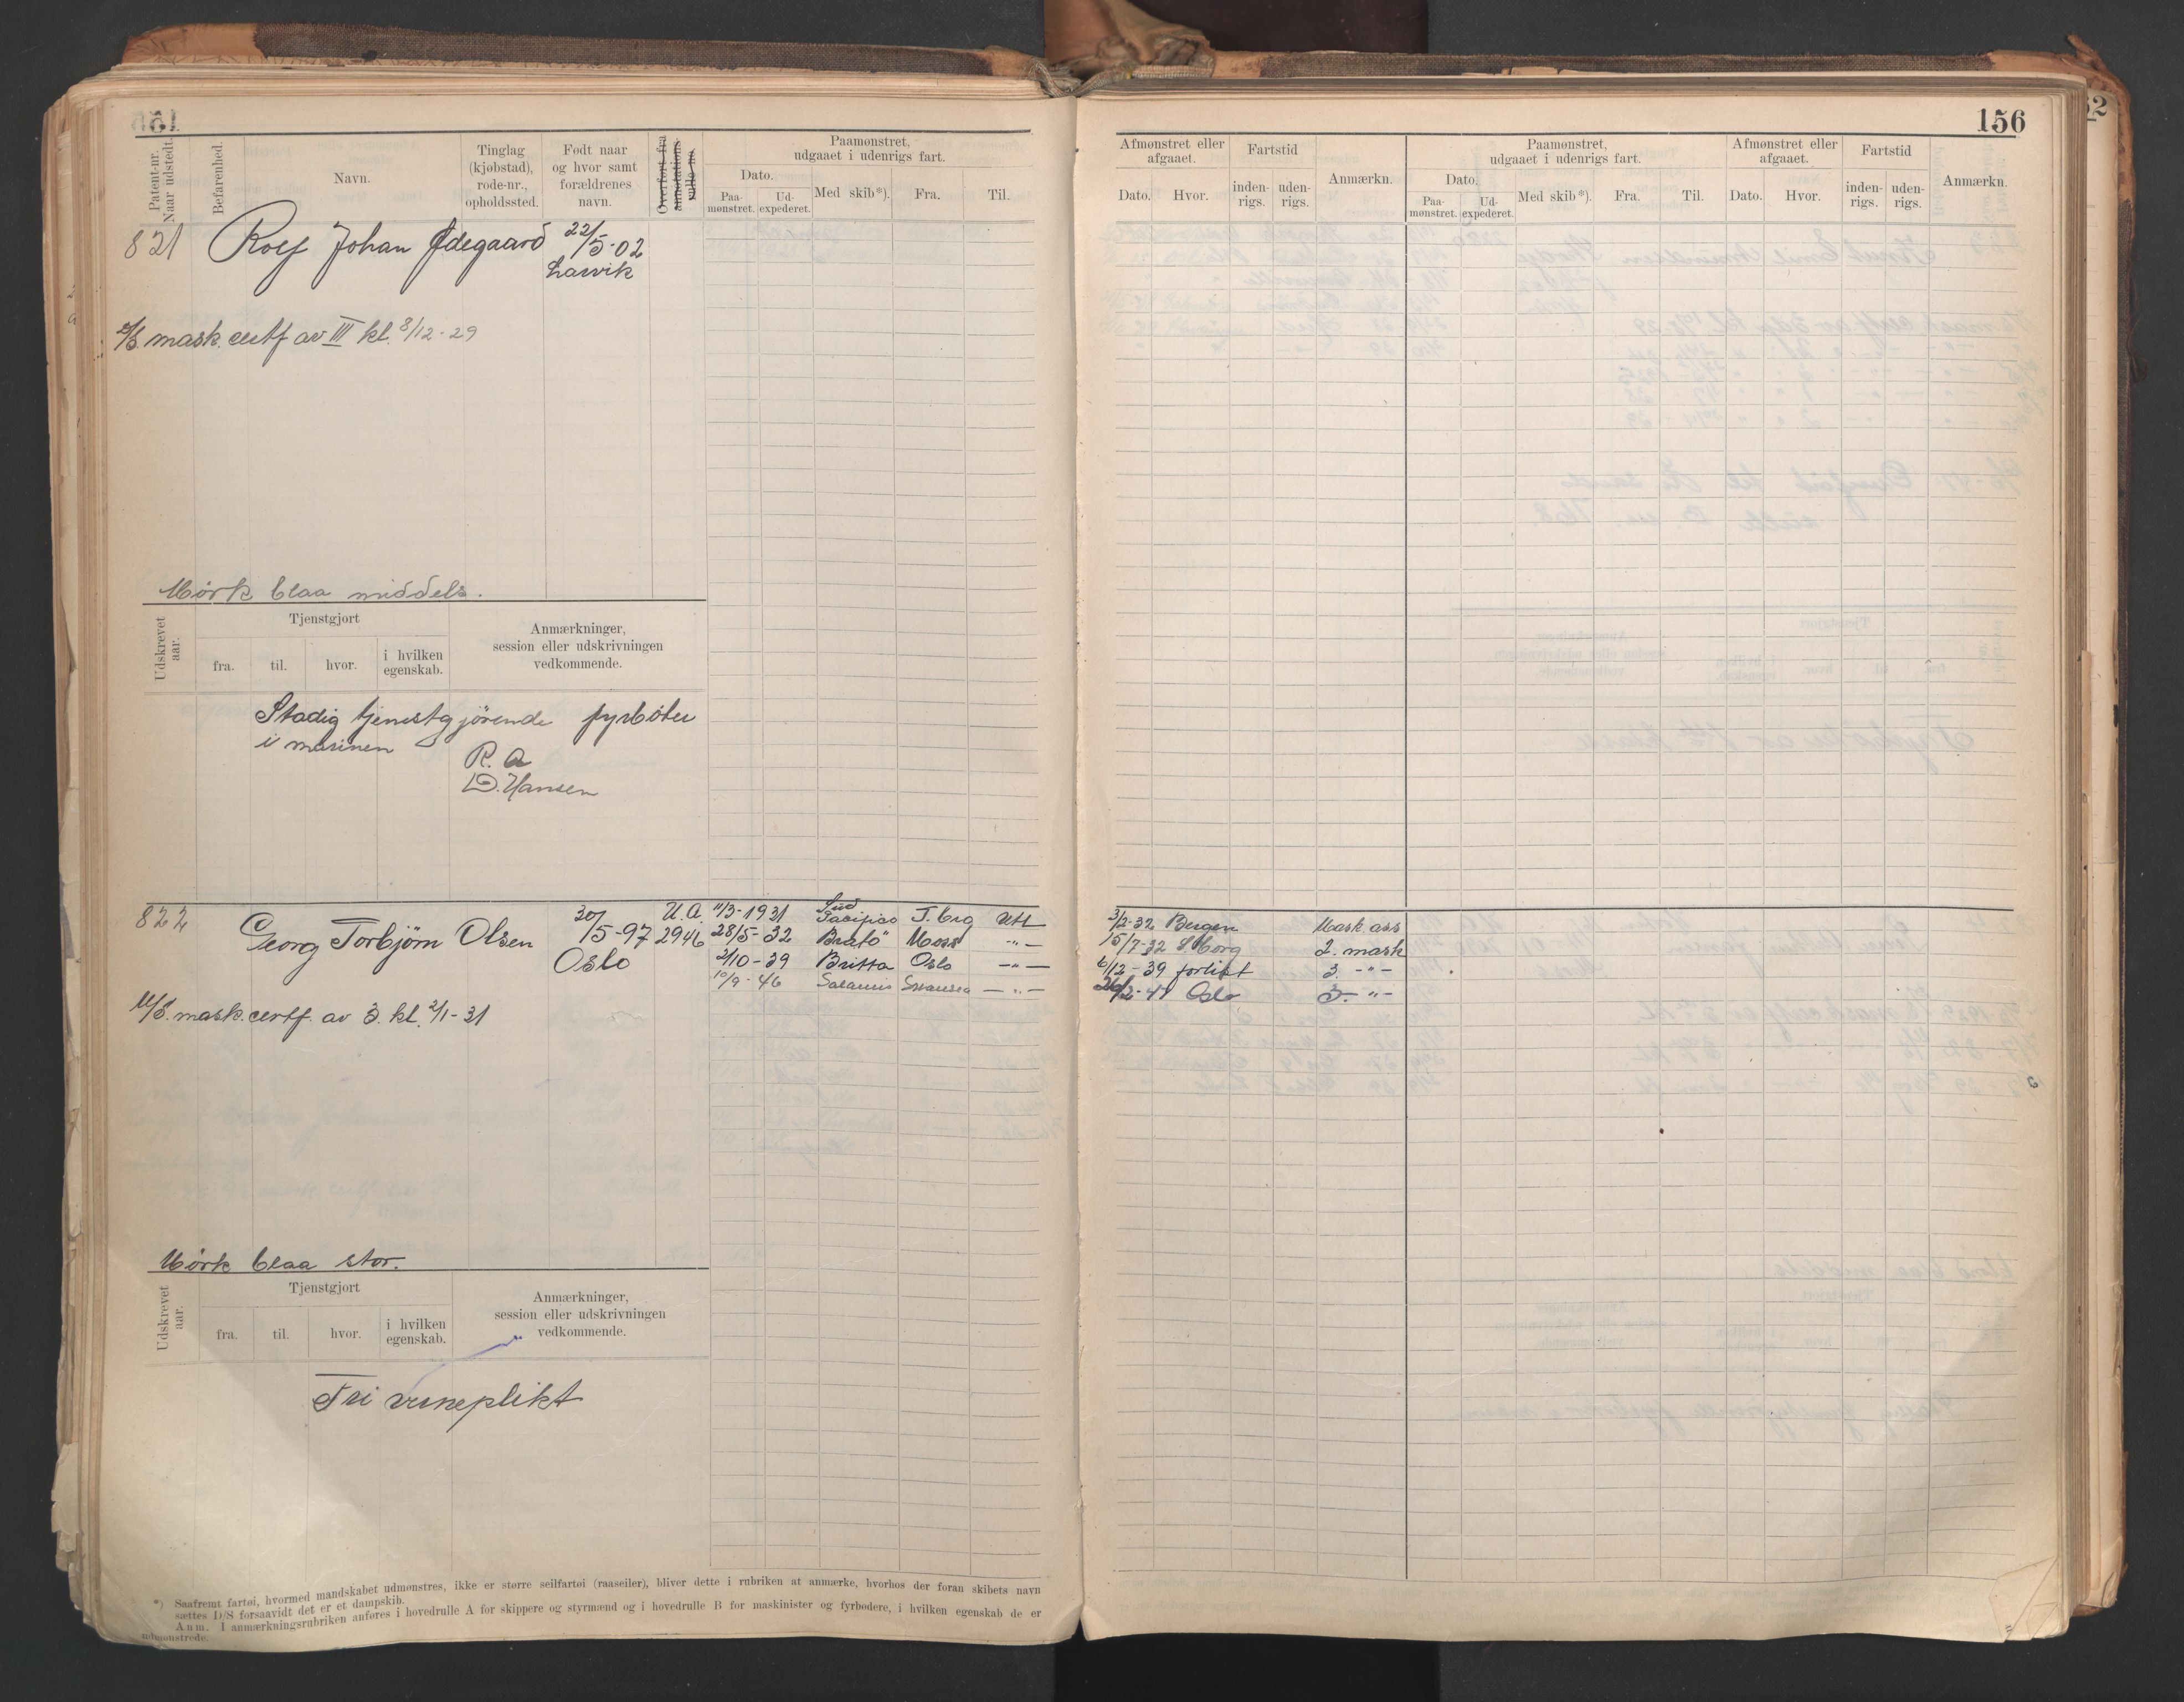 156
Patent-nr.
Naar udstedt.
Befarenhed.
Navn.
Tinglag
(kjøbstad),
rode-nr.,
opholdssted.
Født naar
og hvor samt
forældrenes
navn.
Overført fra
annotations
rulle no
Paamønstret,
udgaaet i udenrigs fart.
Dato.
Paa-
mønstret.
Ud-
expederet.
Med skib*).
Fra.
Til.
Afmønstret eller
afgaaet.
Dato.
Hvor.
Fartstid
inden-
rigs.
uden-
rigs.
Anmærkn.
Paamønstret,
udgaaet i udenrigs fart.
Dato.
Paa-
mønstret.
Ud-
expederet.
Med skib*).
Fra.
Til.
Afmønstret eller
afgaaet.
Dato.
Hvor.
Fartstid
inden-
rigs.
uden-
rigs.
Anmærkn.
821 Rolf Johan Ødegaard 22/5-02
Larvik
mask. certf av III kl. 8/12-29
Mörk blaa middels.
Udskrevet
aar.
Tjenstgjort
fra.
til.
hvor.
i hvilken
egenskab.
Anmærkninger,
session eller udskrivningen
vedkommende.
Stadig tjenestgjörende fyrböter
i marinen
R. A
D. Hansen
822 Georg Torbjörn Olsen 30/5-97 U.A. 2946
Oslo
11/3-1931 Sud Pacifico T.brg Utl 3/2-32 Bergen Mask ass
28/5-32 Bratö Moss -"- 15/7-32 S.borg 2. mask
2/10-39 Britta Oslo -"- 6/12-39 forlist 3. -"-
10/9-46 Salamis Swansea -"- Oslo 3. -"-
mask. certf. av 3. kl. 2/1-31
Mörk blaa stor.
Udskrevet
aar.
Tjenstgjort
fra.
til.
hvor.
i hvilken
egenskab.
Anmærkninger,
session eller udskrivningen
vedkommende.
Fri verneplikt
*) Saafremt fartøi, hvormed mandskabet udmønstres, ikke er større seilfartøi (raaseiler), bliver dette i rubriken at anmærke, hvorhos der foran skibets navn
sættes D/S forsaavidt det er et dampskib.
Anm. I anmærkningsrubriken anføres i hovedrulle A for skippere og styrmænd og i hovedrulle B for maskinister og fyrbødere, i hvilken egenskab de er
udmønstrede.